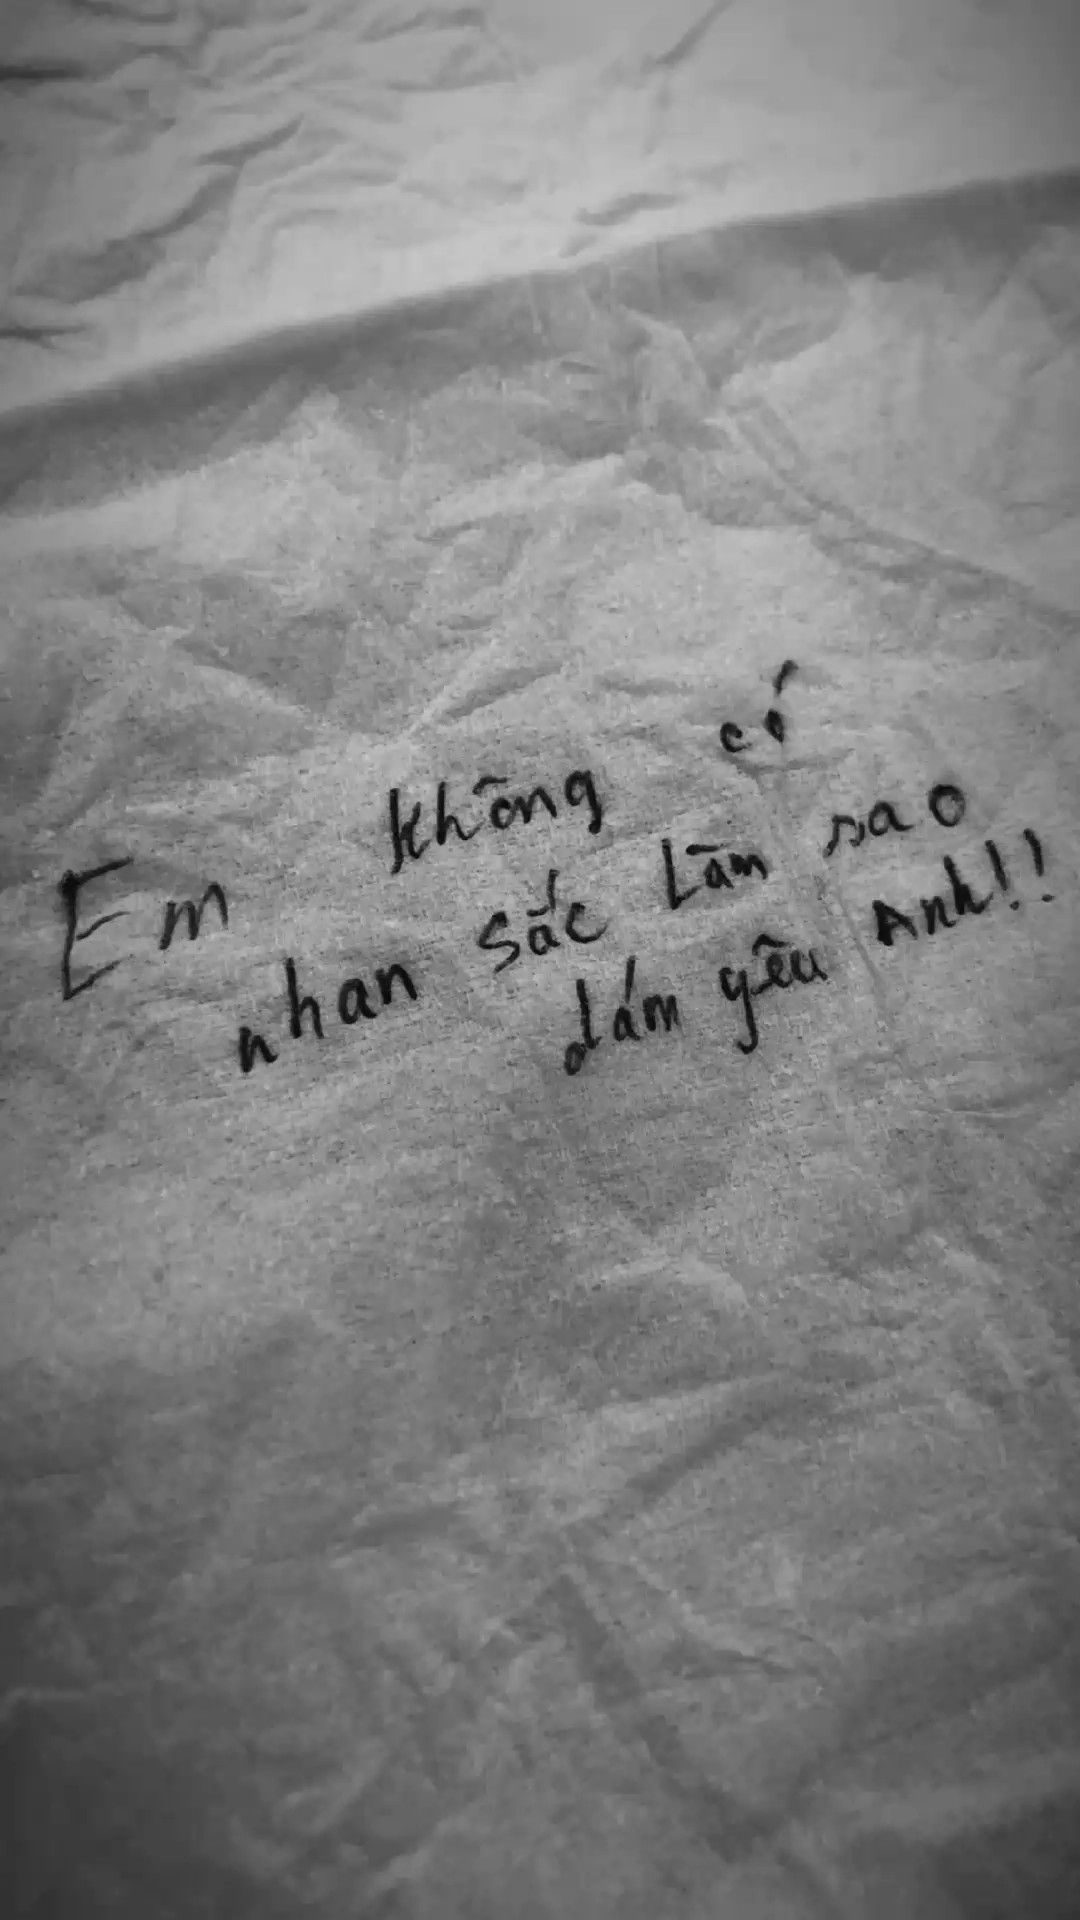 Em không có
nhan sắc Lãm sao
dám yêu Anh!!